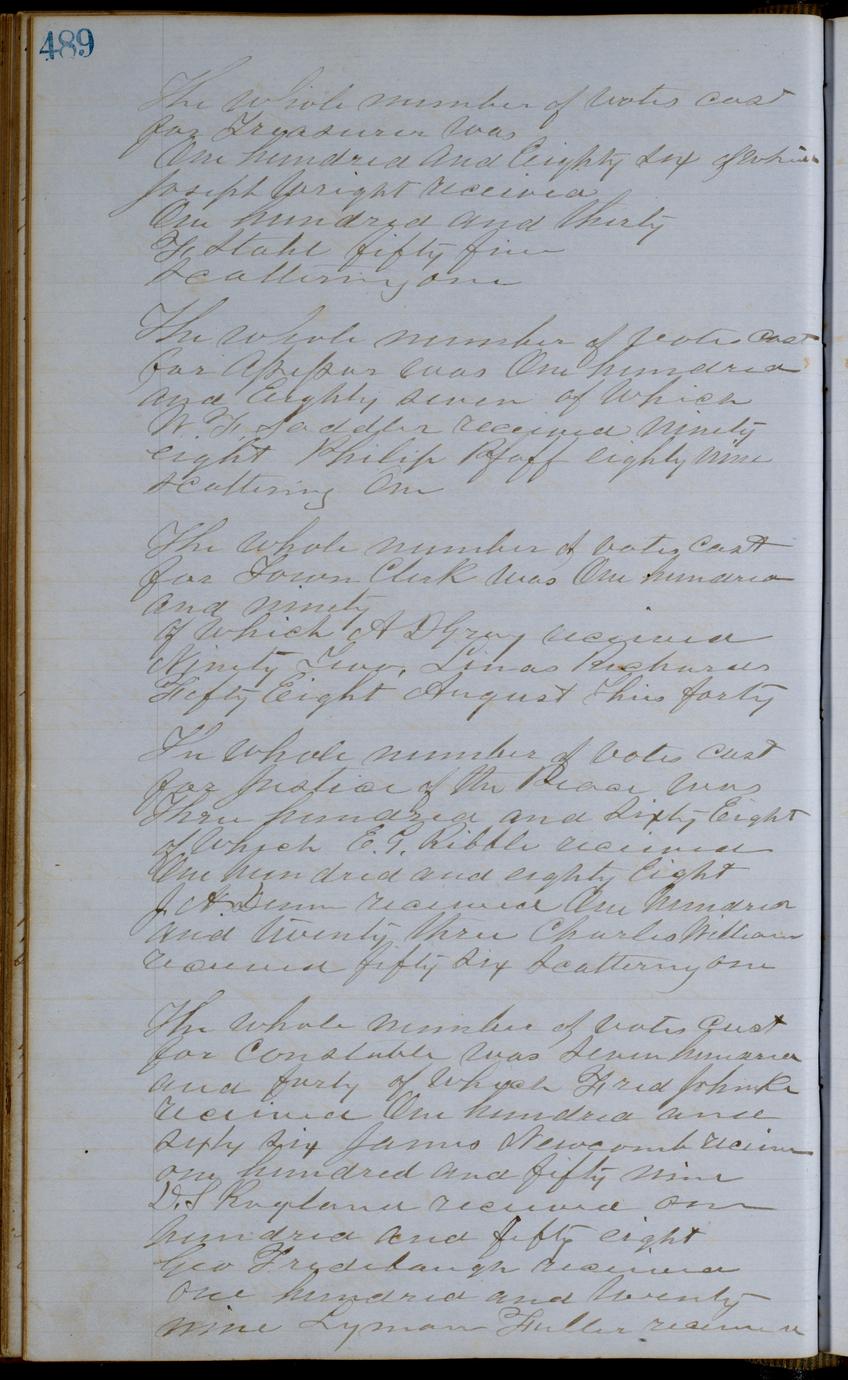 489
The whole number of votes cast
for Treasurer was
One hundred and Eighty six of which
Joseph Wright received
One hundred and thirty
F Stahl fifty five
scattering one
The whole number of votes cast
for Assessor was One hundred
and Eighty seven of which
W. F. Saddler received Ninety
eight Philip Pfaff eighty nine
scattering One
The whole number of votes cast
for Town Clerk was One hundred
and ninety
of which A D Gray received
Ninety Two, Linas Richards
Fifty Eight August Thies forty
The whole number of votes cast
for Justice of the Peace was
Three hundred and Sixty Eight
of which E. G. Ribble received
One hundred and eighty Eight
J A Dunn received One hundred
and twenty three Charles William
received fifty six scattering one
The whole number of votes cast
for Constable was Seven hundred
and forty of which Fred Johnke
received One hundred and
sixty six James Newcomb receive
one hundred and fifty nine
D. S Ragland received one
hundred and fifty eight
Geo Fridebaugh received
One hundred and twenty
nine Lyman Fuller received